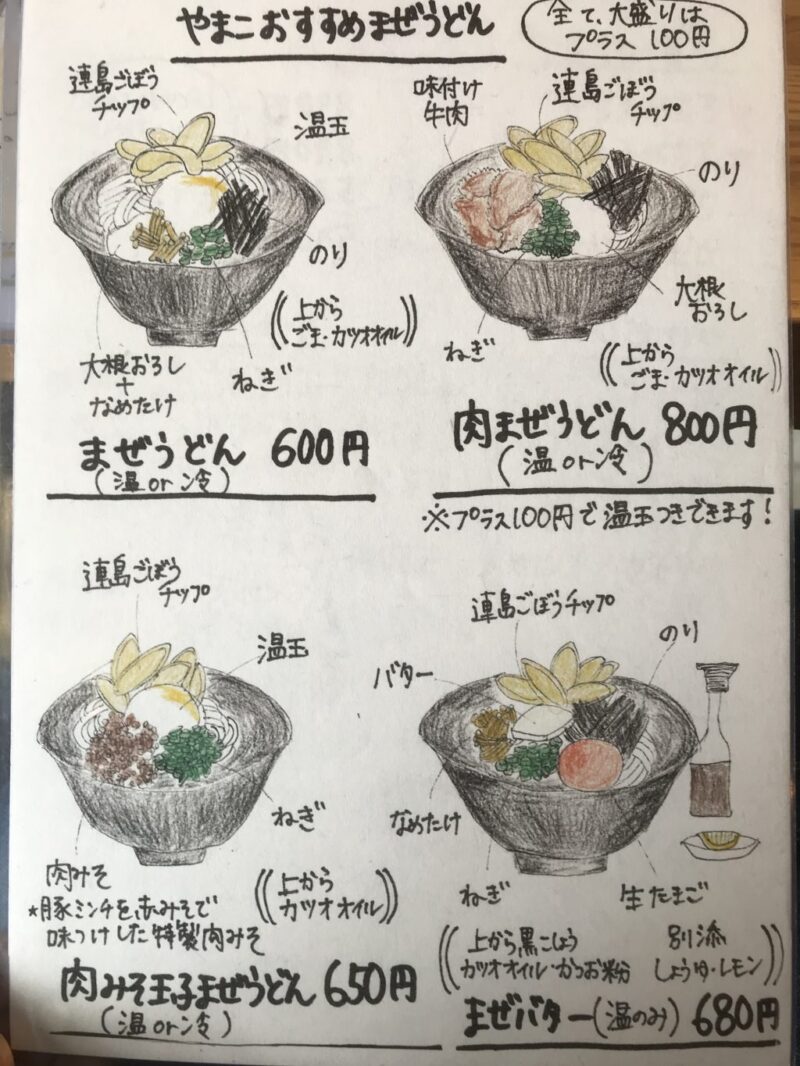 やまこおすすめまぜうどん
全て、大盛りは
プラス100円
連島ごぼう
チップ
温玉
のり
上から
ごま・カツオオイル
ねぎ
大根おろし
+
なめたけ
まぜうどん 600円
(温or冷)
味付け
牛肉
連島ごぼう
チップ
のり
大根
おろし
ねぎ
上から
ごま・カツオオイル
肉まぜうどん 800円
(温or冷)
※プラス100円で温玉つきできます!
連島ごぼう
チップ
温玉
ねぎ
肉みそ
★豚ミンチを赤みそで
味つけした特製肉みそ
上から
カツオオイル
肉みそ玉子まぜうどん 650円
(温or冷)
連島ごぼうチップ
のり
バター
なめたけ
ねぎ
生たまご
上から黒こしょう
カツオオイル・かつお粉
別添
しょうゆ・レモン
まぜバター(温のみ) 680円